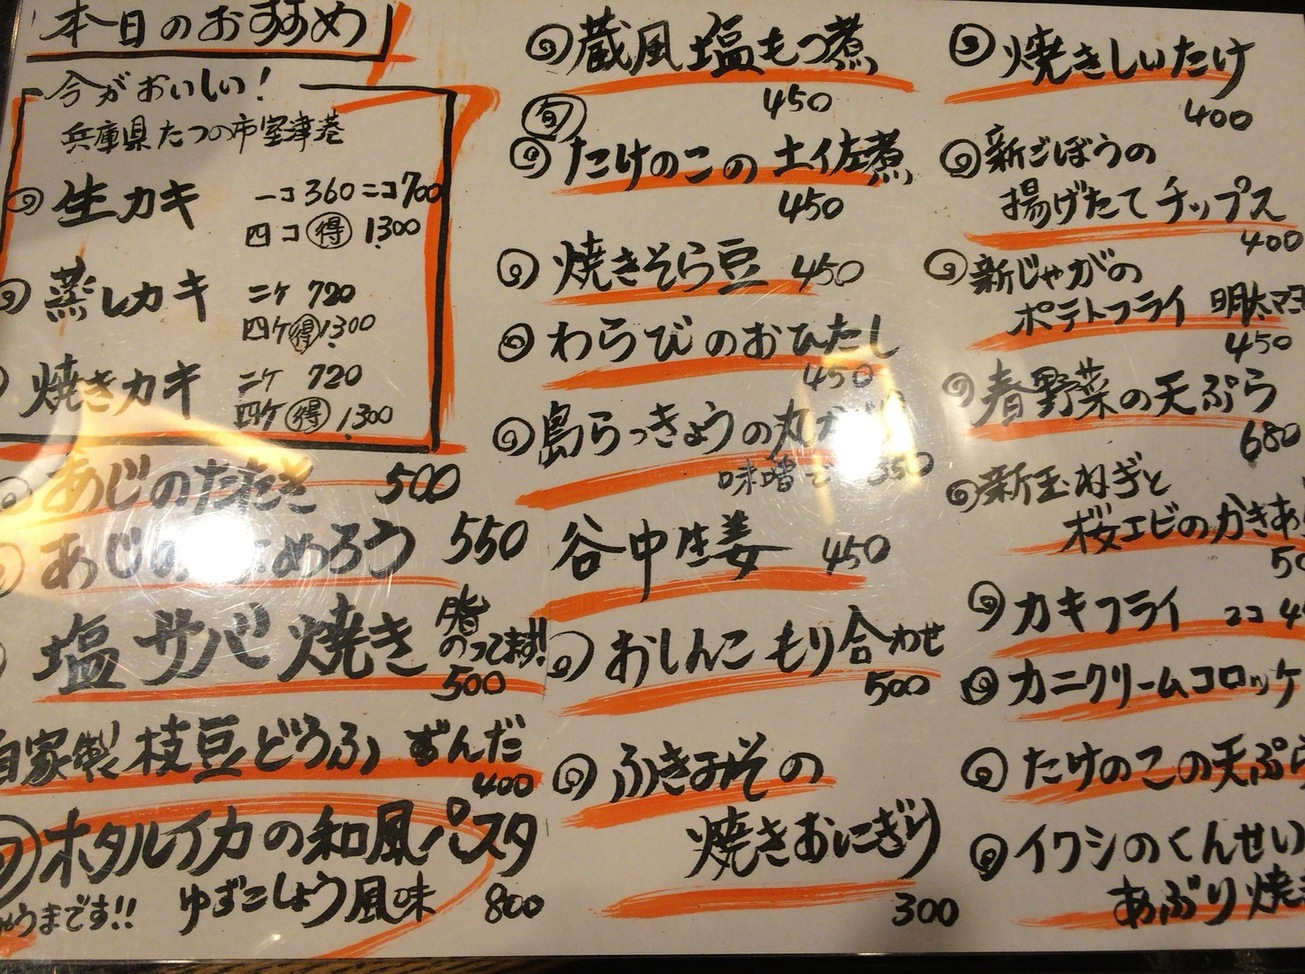 本日のおすすめ
今がおいしい!
兵庫県たつの市室津港
生カキ 一コ360 ニコ700
四コ 得 1300
蒸しカキ ニケ 720
四ケ 得 1300
焼きカキ ニケ 720
四ケ 得 1300
あじのたたき 500
あじの めろう 550
塩サバ焼き 脂
のってます!!
500
自家製枝豆どうふ ずんだ
400
ホタルイカの和風パスタ
うまです!! ゆずこしょう風味 800
蔵風塩もつ煮
450
旬
たけのこの土佐煮
450
焼きそら豆 450
わらびのおひたし
450
島らっきょうの丸
味噌で 350
谷中生姜 450
おしんこもり合わせ
500
ふきみその
焼きおにぎり
300
焼きしいたけ
400
新ごぼうの
揚げたてチップス
400
新じゃがの
ポテトフライ 明太マヨ
450
春野菜の天ぷら
680
新玉ねぎと
桜エビのかきあ
50
カキフライ 2コ 4
カニクリームコロッケ
たけのこの天ぷら
イワシのくんせい
あぶり焼き